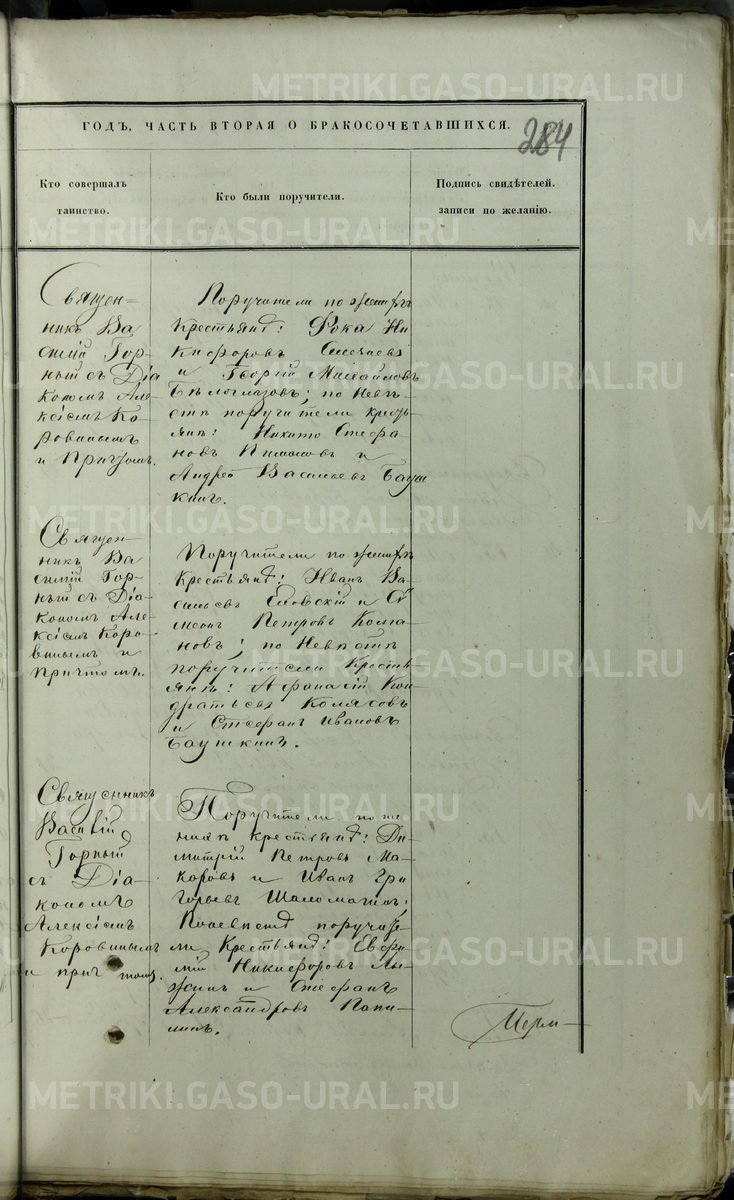 METRIKI.GASO-URAL.RU
ГОДЪ, ЧАСТЬ ВТОРАЯ О БРАКОСОЧЕТАВШИХСЯ.
284
Кто совершалъ
таинство.
Кто были поручители.
Подпись свидѣтелей.
записи по желанію.
Священ-
никъ Ва
силій Гор-
ный съ Діа
кономъ Але-
ксіемъ Ко-
ровинымъ
и Причтомъ.
Поручители по женихѣ
крестьяне: Фока Ни
кифоровъ
и Георгій Михайловъ
Бѣлоглазовъ; по Невѣ-
стѣ поручители кресть-
яне: Никита Стефа
новъ и
Андрей Васильевъ Бауш
кинъ.
Священ-
никъ Ва
силій Гор-
ный съ Діа-
кономъ Але-
ксіемъ Коро-
винымъ и
Причтомъ.
Поручители по женихѣ
крестьяне: Иванъ Ва-
сильевъ Еловскій и Си
меонъ Петровъ Колма
новъ; по Невѣстѣ
поручители Кресть-
яне: Афанасій Кон-
дратьевъ Колясовъ
и Стефанъ Ивановъ
Баушкинъ.
Священникъ
Василій
Горный
съ Діа-
кономъ
Алексіемъ
Коровинымъ
и причтомъ.
Поручители по же
нихѣ крестьяне: Ди-
митрій Петровъ Ма-
каровъ и Иванъ Гри
горьевъ Шаломатовъ;
Поневѣстѣ поручите
ли Крестьяне: Евфи-
мій Никифоровъ Лы-
жинъ и Стефанъ
Александровъ
METRIKI.GASO-URAL.RU